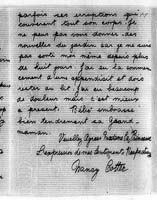 parfois ses éruptions qui
couvraient tout son corps. Je
ne peux pas vous donner des
nouvelles du jardin car je ne suis
pas sorti moi même depuis plus
de huit jours. J'ai eu un commen-
cement d'une appendicite et dois
rester au lit. J'ai eu beaucoup
de douleur mais c'est mieux
a présent. Bébé embrasse
bien tendrement sa grand
maman.
Veuillez agréer Madame la
L'expression de mes sentiments respectueux
Nancy Cottet